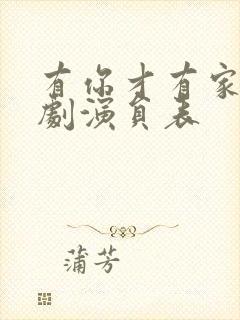 有你才有家
劇演員表
蒲芳